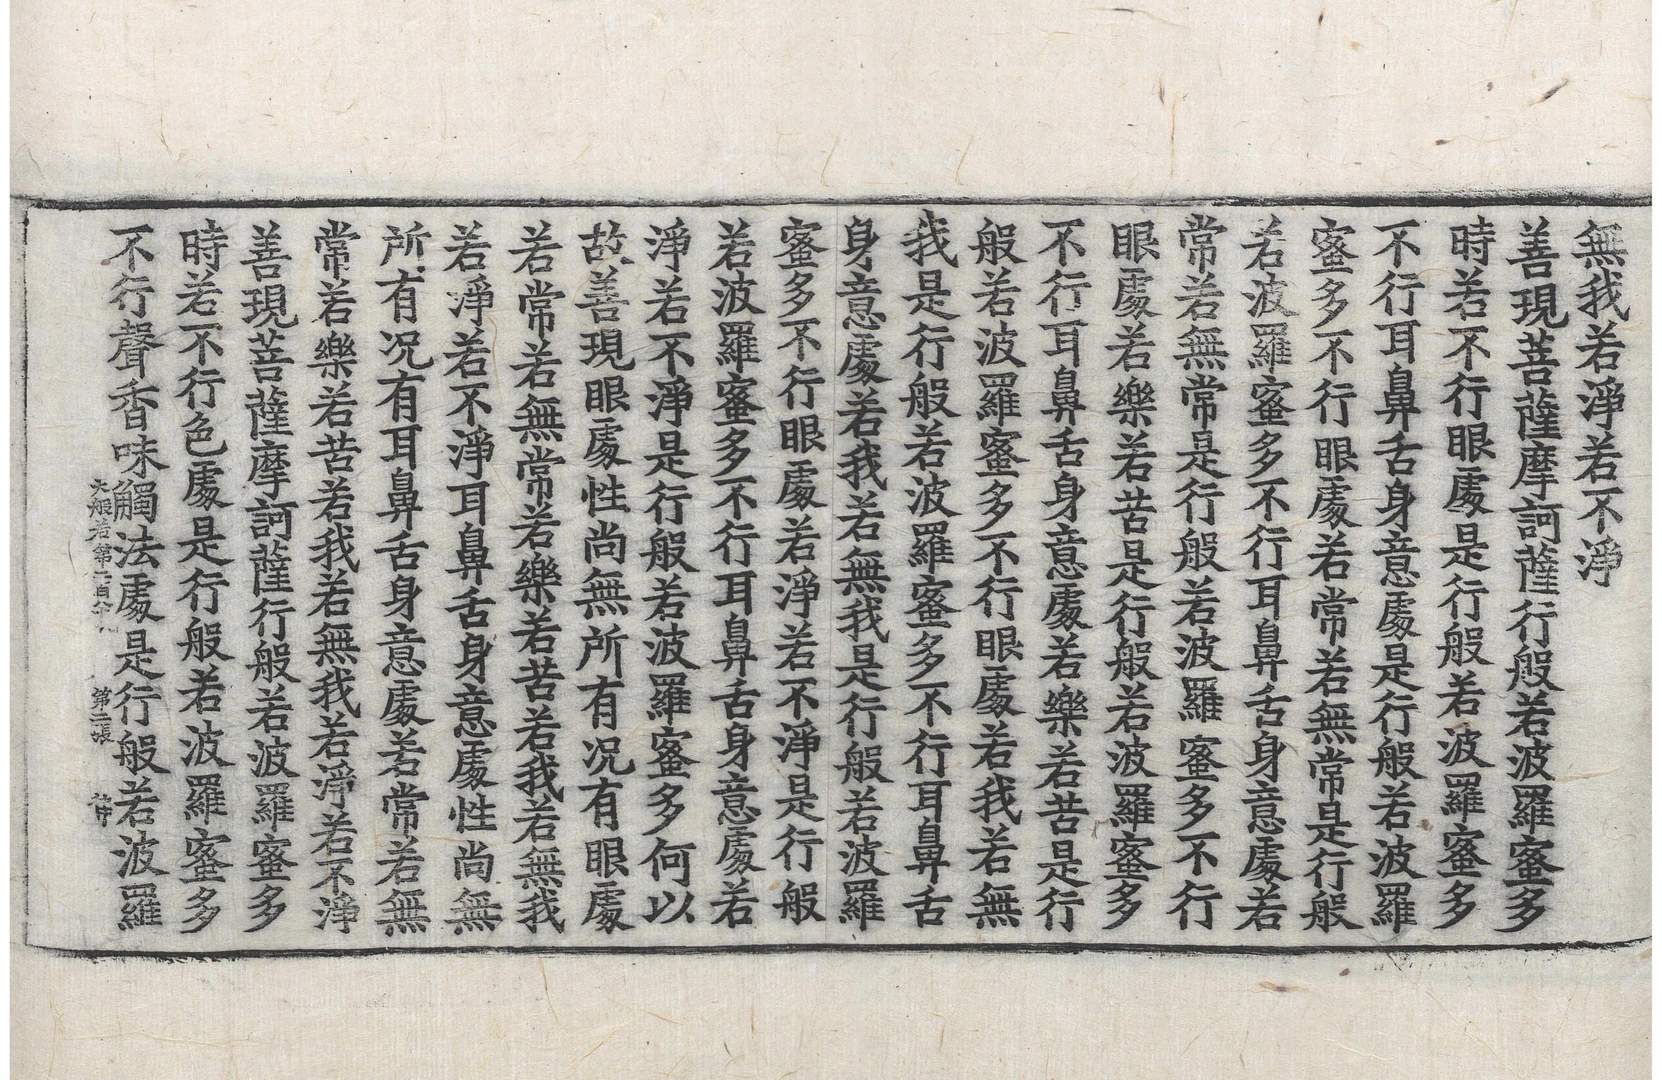 無我若淨若不淨
善現菩薩摩訶薩行般若波羅蜜多
時若不行眼處是行般若波羅蜜多
不行耳鼻舌身意處是行般若波羅
蜜多不行眼處若常若無常是行般
若波羅蜜多不行耳鼻舌身意處若
常若無常是行般若波羅蜜多不行
眼處若樂若苦是行般若波羅蜜多
不行耳鼻舌身意處若樂若苦是行
般若波羅蜜多不行眼處若我若無
我是行般若波羅蜜多不行耳鼻舌
身意處若我若無我是行般若波羅
蜜多不行眼處若淨若不淨是行般
若波羅蜜多不行耳鼻舌身意處若
淨若不淨是行般若波羅蜜多何以
故善現眼處性尚無所有況有眼處
若常若無常若樂若苦若我若無我
若淨若不淨耳鼻舌身意處性尚無
所有況有耳鼻舌身意處若常若無
常若樂若苦若我若無我若淨若不淨
善現菩薩摩訶薩行般若波羅蜜多
時若不行色處是行般若波羅蜜多
不行聲香味觸法處是行般若波羅
大般若第二百 第二張